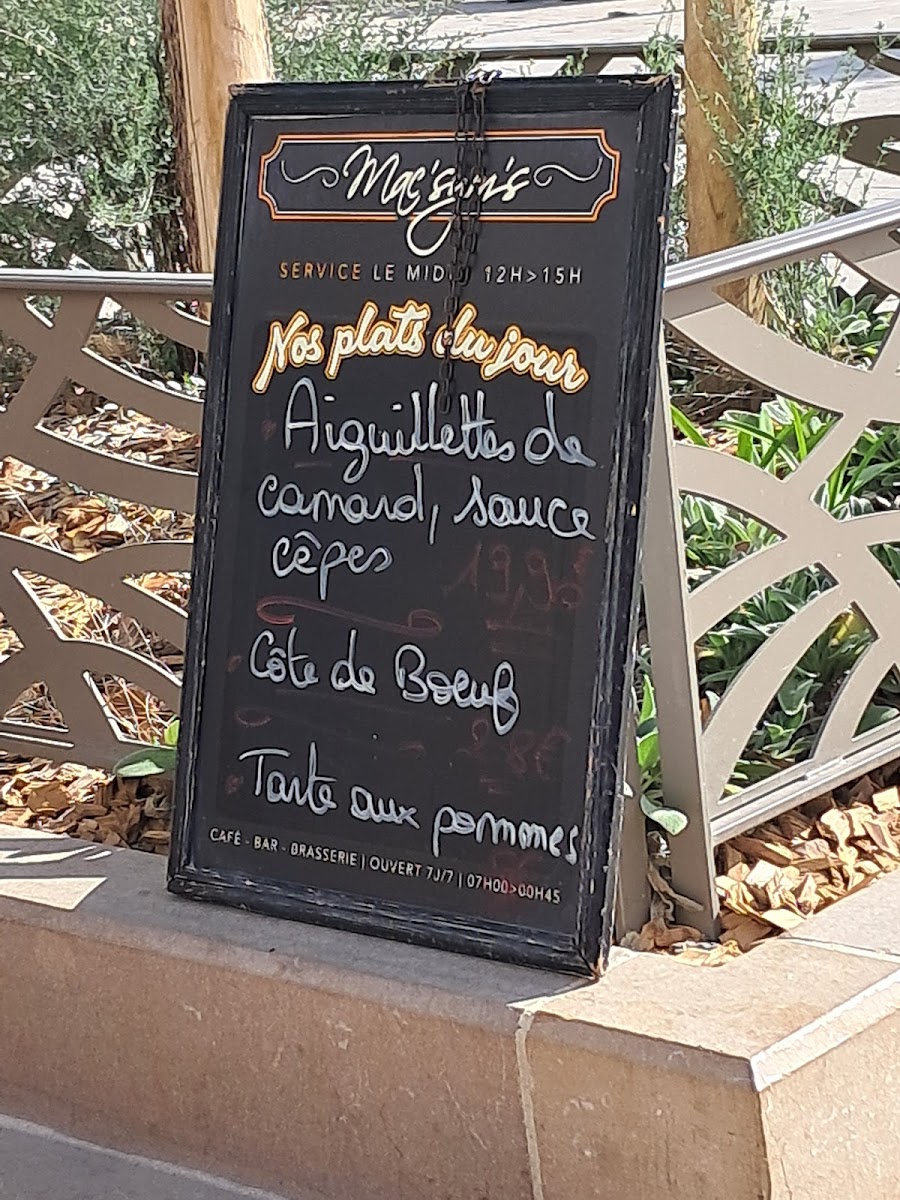 SERVICE LE MIDI 12H>15H
Nos plats du jour
Aiguillettes de
canard, sauce
cèpes
19,95
Côte de Boeuf
28€
Tarte aux pommes
CAFÉ - BAR - BRASSERIE | OUVERT 7J/7 | 07H00>00H45